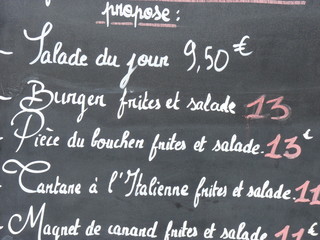 propose :
- Salade du jour 9,50€
- Burger frites et salade 13
- Pièce du boucher frites et salade. 13€
- Tartare à l'Italienne frites et salade. 11
- Magret de canard frites et salade 11€